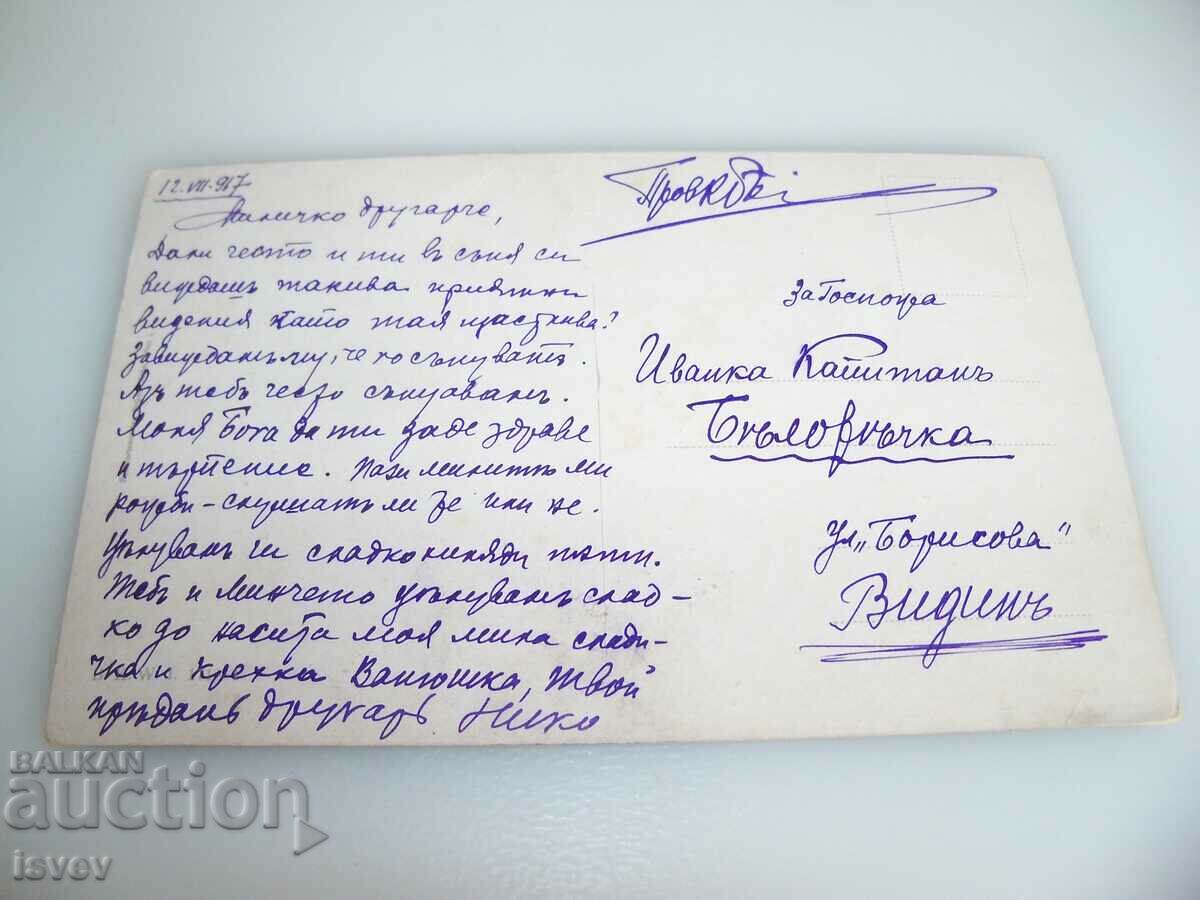 12.VII.917
Миличко другарче,
Дали често и ти въ съня си
виждашъ такива приятни
видения като тая щастлива?
Завиждамъ му, че го сънуватъ.
Азъ тебъ често сънувамъ.
Моля Бога да ти даде здраве
и търпение. Пази милитѣ ми
рожби - слушатъ ли те или не.
Цѣлувамъ ги сладко хиляди пѫти.
Тебъ и Минчето цѣлувамъ слад-
ко до насита моя мила слади-
чка и крехка Ванюшка, твой
прѣданъ другарь Нико
За Госпожа
Иванка Капитанъ
Бѣлорѣчка
Ул. "Борисова"
Видинъ
BALKAN
auction
isvev